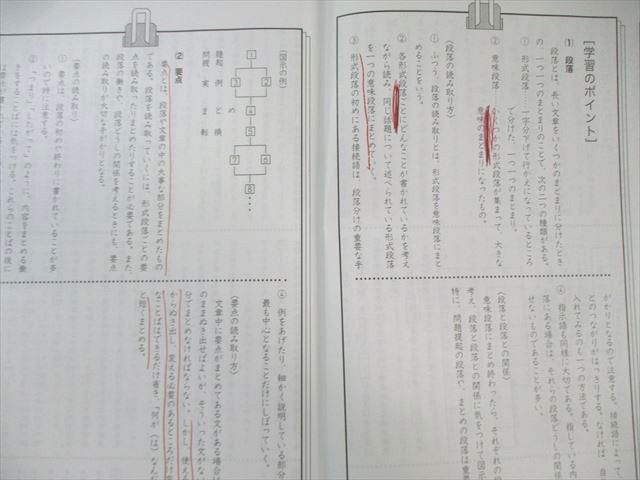 [学習のポイント]
① 段落
段落とは、長い文章をいくつかのまとまりに分けたとき
の、一つ一つのまとまりのことで、次の二つの種類がある。
① 形式段落…一字分下げて行かえになっているところ
で分けた、一つ一つのまとまり。
② 意味段落…いくつかの形式段落が集まって、大きな
意味のまとまりになったもの。
〈段落の読み取り方〉
① ふつう、段落の読み取りとは、形式段落を意味段落にまと
めることをいう。
② 各形式段落ごとにどんなことが書かれているかを考え
ながら読み、同じ話題について述べられている形式段落
を一つの意味段落にまとめていく。
③ 形式段落の初めにある接続語は、段落分けの重要な手
がかりとなるので注意する。接続語によって、
とのつながりがはっきりする。なければ、自
入れてみるのも一つの方法である。
④ 指示語も同様に大切である。指している内
落にある場合は、それらの段落どうしの関係
せないものであることが多い。
〈段落と段落との関係〉
意味段落にまとめ終わったら、それぞれの段
考え、段落と段落との関係に気をつけて図示
特に、問題提起の段落や、まとめの段落は重要
〈図示の例〉
1
2
3
4
5
6
7
8
問題提起
実例
まとめ
転換
② 要点
要点とは、段落や文章の中の大事な部分をまとめたもの
である。段落を読み取っていくには、形式段落ごとの要
点を読み取ったりまとめたりすることが必要である。また、
段落の働きや、段落どうしの関係を考えるときにも、要点
の読み取りが大切な手がかりとなる。
〈要点の読み取り〉
① 要点は、段落の初めや終わりに書かれていることが多
いので特に注意する。
② 「つまり」「したがって」のように、内容をまとめる働
きをすることばには気をつける。これらのことばの後に
④ 例をあげたり、細かく説明している部分
最も中心となることだけにしぼっていく。
〈要点の読み取り方〉
文章中に要点がまとめてある文がある場合は
のままぬき出せばよいが、そういった文がな
分でまとめなければならない。しかし、使える
からぬき出し、変える必要のあるところだけを
なことばはできるだけ省き、「何が（は）なんだ
と短くまとめる。